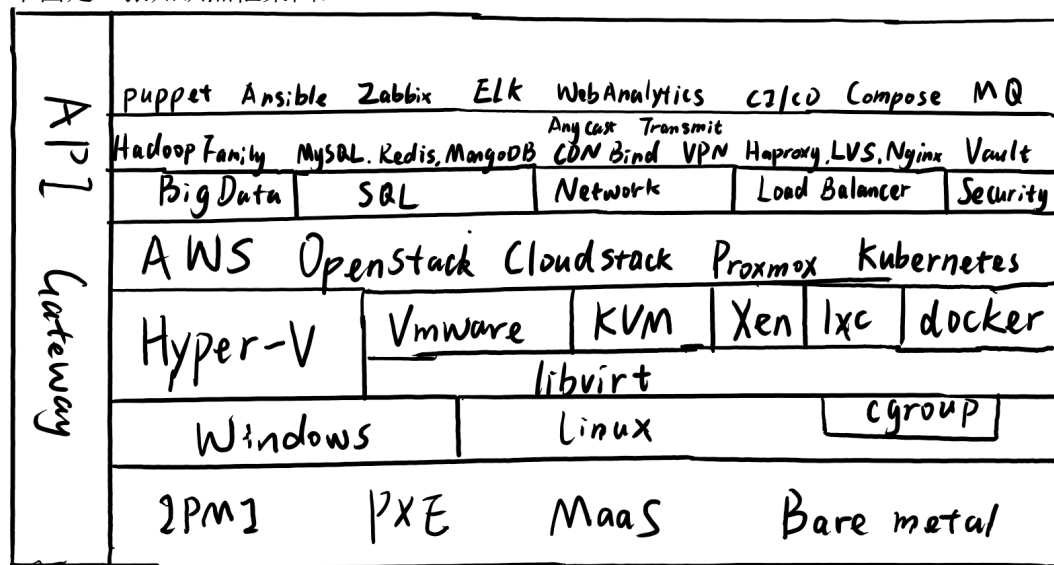 API Gateway
puppet Ansible Zabbix ELK WebAnalytics CI/CD Compose MQ
Anycast Transmit
Hadoop Family MySQL. Redis, MongoDB CDN Bind VPN Haproxy, LVS, Nginx Vault
Big Data SQL Network Load Balancer Security
AWS Openstack Cloudstack Proxmox Kubernetes
Hyper-V Vmware KVM Xen lxc docker
libvirt
Windows Linux cgroup
IPMI PXE MaaS Bare metal